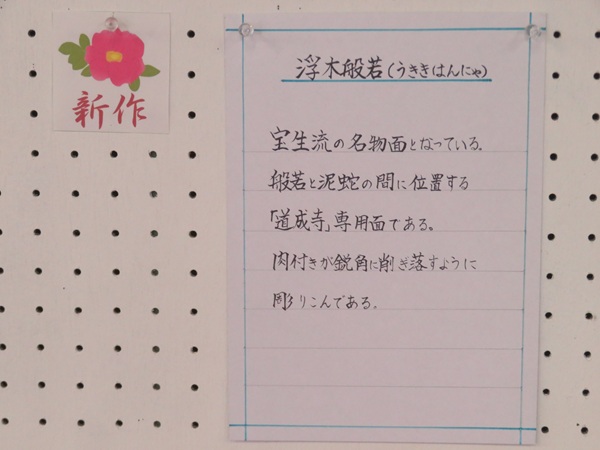 新作
浮木般若(うききはんにゃ)
宝生流の名物面となっている。
般若と泥蛇の間に位置する
「道成寺」専用面である。
肉付きが鋭角に削ぎ落すように
彫りこんである。